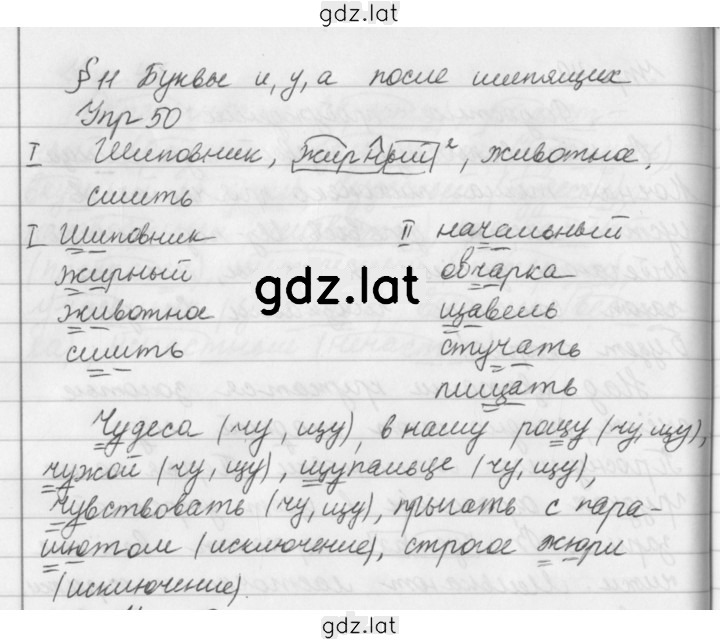 gdz.lat
§ 11 Буквы и, у, а после шипящих
Упр 50
I Шиповник, жирный², животное,
сшить
I Шиповник II начальный
жирный овчарка
животное щавель
сшить стучать
пищать
gdz.lat
Чудеса (чу, щу), в нашу рощу (чу, щу),
чужой (чу, щу), щупальце (чу, щу),
чувствовать (чу, щу), прыгать с пара-
шютом (исключение), строгое жюри
(исключение).
gdz.lat